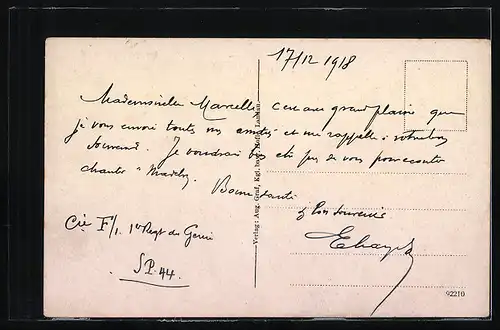 17/12 1918
Mademoiselle Marcelle c'est avec grand plaisir que
je vous envoi toutes mes amitiés et me rappelle à votre bon
souvenir. Je voudrai bien être près de vous pour écouter
chanter "Madelon"
Bonne santé
& bon souvenir
Cie F/1. 1er Regt du Génie
S.P. 44
Verlag: Aug. Graf, Kgl. Landau
92210